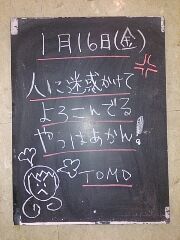 1月16日(金)
人に迷惑かけて
よろこんでる
やつはあかん!
TOMO